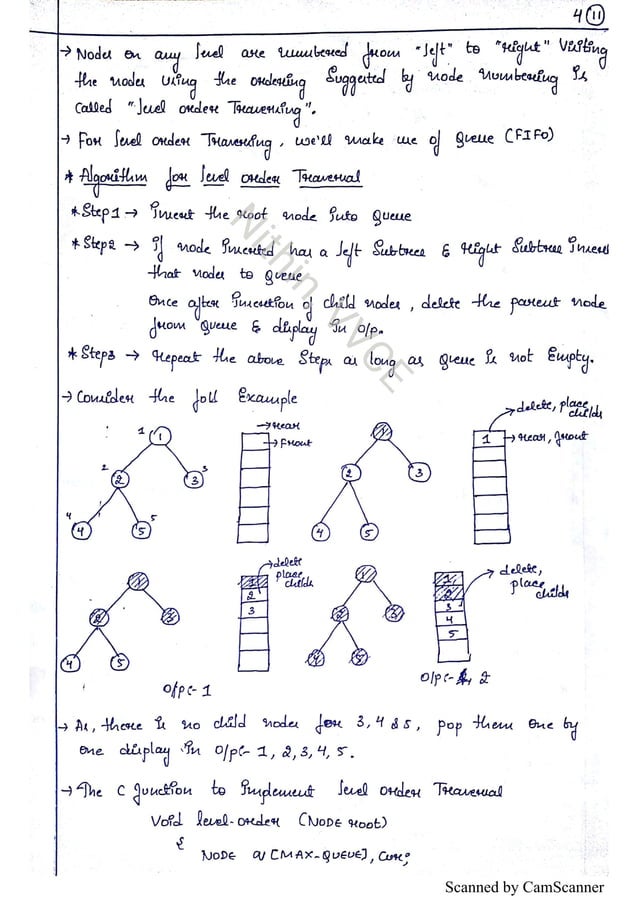 4 (11)
→ Nodes on any level are numbered from "left" to "right" Visiting
the nodes using the ordering Suggested by node numbering is
called "level order Traversing".
→ For level order Traversing, we'll make use of Queue (FIFO)
* Algorithm for level order Traversal
* Step1 → Insert the root node into Queue
* Step2 → if node inserted has a left Subtree & right Subtree Insert
that nodes to Queue
Once after insertion of child nodes, delete the parent node
from Queue & display in o/p.
* Step3 → Repeat the above Steps as long as Queue is not Empty.
Nithin VVCE
→ Consider the foll Example
→ delete, place childs
→ rear
→ Front
1 1
2 2
3 3
4 4
5 5
1
2
3
4
5
1 → rear, front
→ delete place childs
→ delete, place childs
1
2
3
4
5
1
2
3
1
2
3
4
5
1
2
3
4
5
o/p:- 1
o/p:- 1, 2
→ As, there is no child nodes for 3, 4 & 5, pop them one by
one display in o/p:- 1, 2, 3, 4, 5.
→ The C function to implement level order Traversal
Void level-order (NODE root)
{
NODE q[MAX-QUEUE], cur;
Scanned by CamScanner